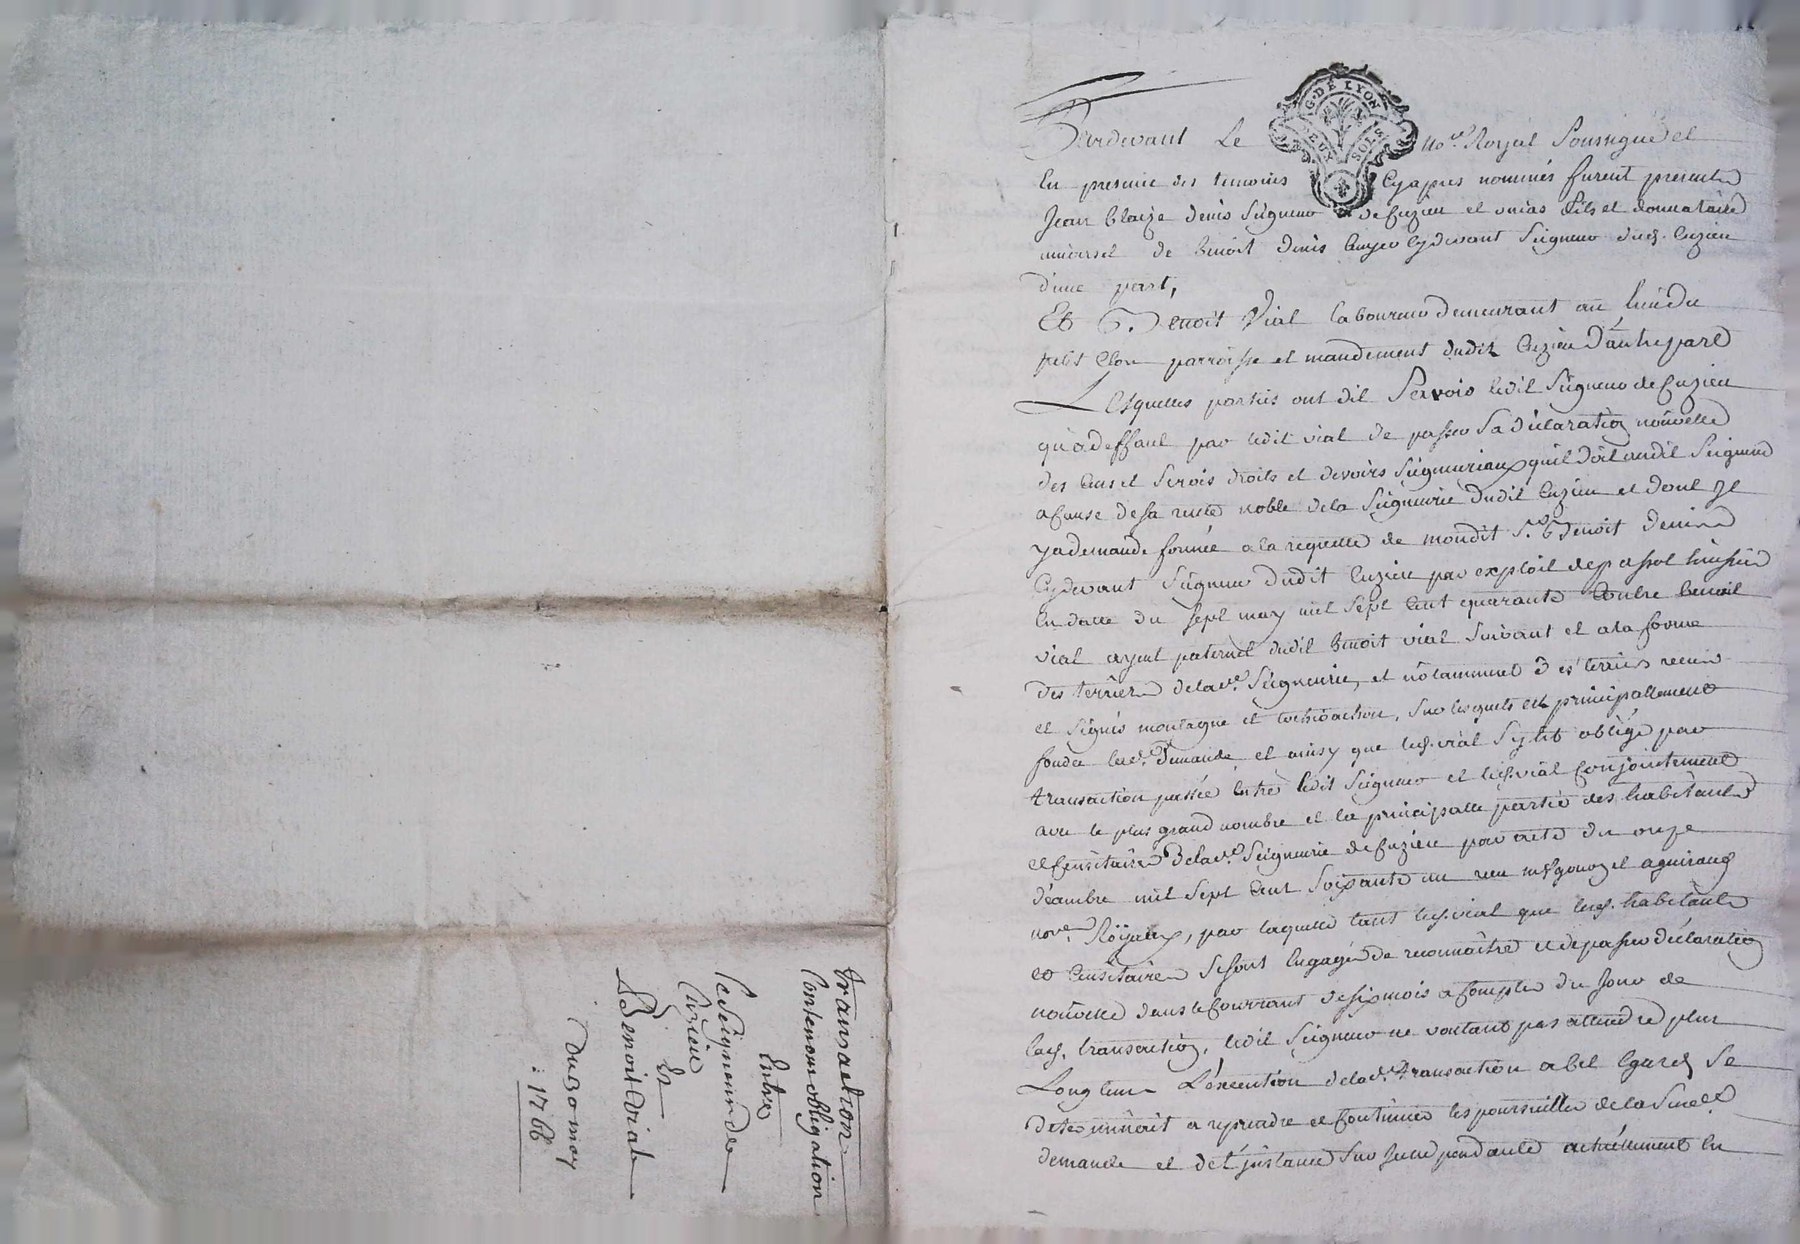 G. DE LYON
DEUX SOLS
Pardevant Le no.re Royal Soussigné et
En presence des temoins Cyapres nommés furent presents
Jean Blaize denis Seigneur de Cuzieu et unias fils et donnataire
universel de Benoit denis Cuyer Cydevant Seigneur dud. Cuzieu
d'une part,
Et S. Benoit Vial laboureur demeurant au lieu du
petit Clon parroisse et mandement dudit Cuzieu D'autre part
Lesquelles parties ont dit Scavoir ledit Seigneur de Cuzieu
qu'a deffaut par ledit vial de passer Sa déclaration nouvelle
des Cens et Servis droits et devoirs Seigneuriaux qu'il doit audit Seigneur
a Cause de sa rente noble de la Seigneurie dudit Cuzieu et dont Il
y a demande formée a la requette de mondit S.r Benoit denis
Cydevant Seigneur dudit Cuzieu par exploit de passot huissier
En datte du Sept may mil Sept Cent quarante Contre benoit
vial ayeul paternel dudit Benoit vial Suivant et a la forme
des terriers de lad.e Seigneurie, et notamment és terriers receus
et Signés montagne et, Sur lesquels est principallement
fondée lad.e Demande et ainsy que led. vial S'y est obligé par
transaction passée Entre ledit Seigneur et led. vial Conjointement
avec le plus grand nombre et la principalle partie des habitants
et Censitaires de lad.e Seigneurie de Cuzieu par acte du onze
décembre mil Sept Cent Soixante un receu et aguiraud
no.res Royaux, par laquelle tant led. vial que lesd. habitants
et Censitaires Se sont Engagés de reconnaitre et de passer déclaration
nouvelle dans le Courrant de six mois a Compter du jour de
lad. transaction, ledit Seigneur ne voulant pas attendre plus
Longtems L'éxecution de lad.e transaction a cet Egard Se
determinoit a reprendre et Continuer les poursuittes de la Susd.e
demande et de l'jnstance Sur Jcelle pendante actuellement En
transaction
Contenant obligation
Entre
le Seigneur de
Cuzieu
Et
Benoit Vial
Du 20 may
1766